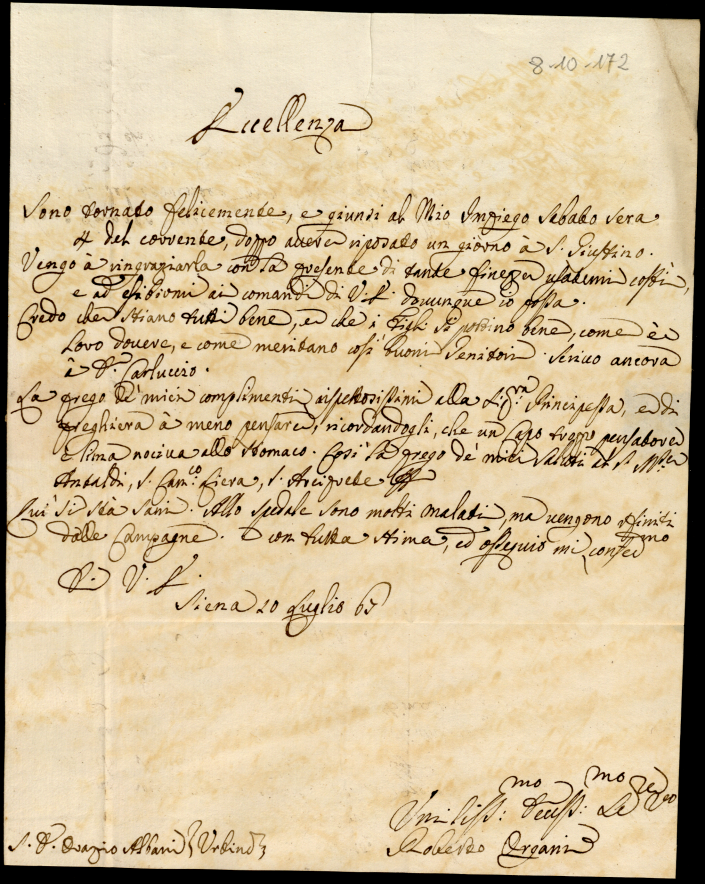 8-10-172
Eccellenza
Sono tornato felicemente, e giunsi al Mio Impiego Sabato Sera
4 del corrente, doppo avere riposato un giorno à S. Giustino.
Vengo à ringraziarla con la presente di tante finezze usatemi costì,
e ad esibirmi ai comandi di V.E. dovunque io possa.
Credo che stiano tutti bene, ed che i Figli si portino bene, come è
Loro dovere, e come meritano così buoni Genitori. Scrivo ancora
à D. Carluccio.
La prego de miei complimenti rispettosissimi alla Sig:ra Principessa, ed di
preghiera à meno pensare, ricordandogli, che un Capo troppo pensatore
è lima nociva allo Stomaco. Così la prego de miei saluti al S.
Antaldi, S. Can:co Liera, S. Arciprete
Qui si stà sani. Allo spedale sono molti malati, ma vengono rifiniti
dalle Campagne. e con tutta stima, ed ossequio mi confermo
D. V. E.
Siena 10 Luglio 67
Umiliss:mo Devss:mo Se Vro
S. D. Orazio Albani } Urbino }
Roberto Organi